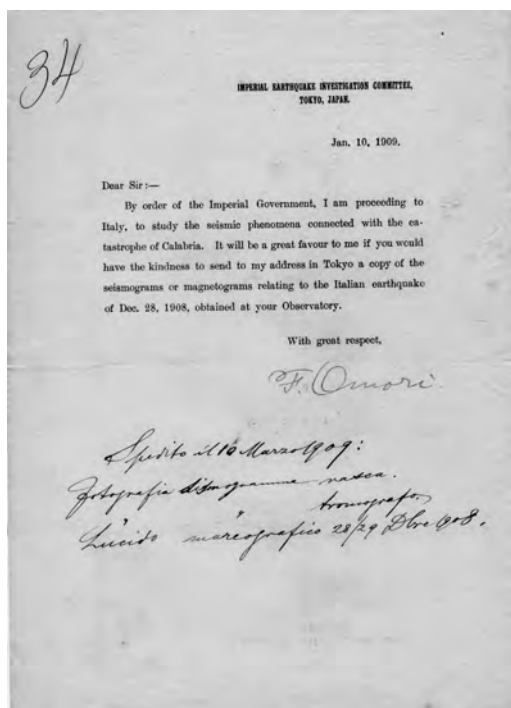 34
IMPERIAL EARTHQUAKE INVESTIGATION COMMITTEE,
TOKYO, JAPAN.
Jan. 10, 1909.
Dear Sir:—
By order of the Imperial Government, I am proceeding to
Italy, to study the seismic phenomena connected with the ca-
tastrophe of Calabria. It will be a great favour to me if you would
have the kindness to send to my address in Tokyo a copy of the
seismograms or magnetograms relating to the Italian earthquake
of Dec. 28, 1908, obtained at your Observatory.
With great respect,
F. Omori.
Spedito il 10 Marzo 1909:
fotografia sismogramma vasca.
" " tromografo
Lucido mareografico 28/29 Dbre 908.